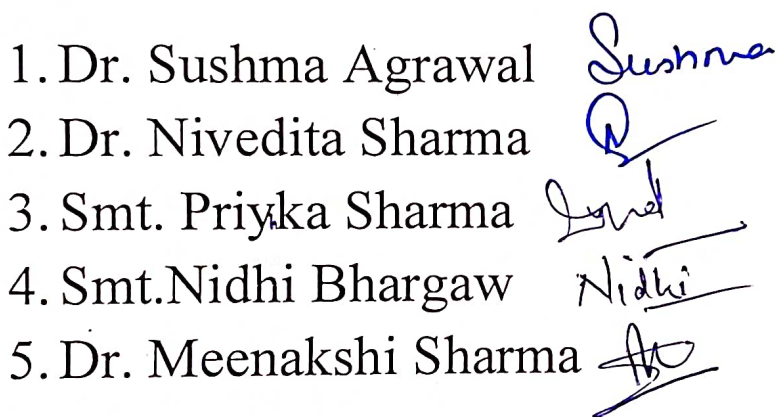 1. Dr. Sushma Agrawal Sushma
2. Dr. Nivedita Sharma
3. Smt. Priyka Sharma
4. Smt.Nidhi Bhargaw Nidhi
5. Dr. Meenakshi Sharma